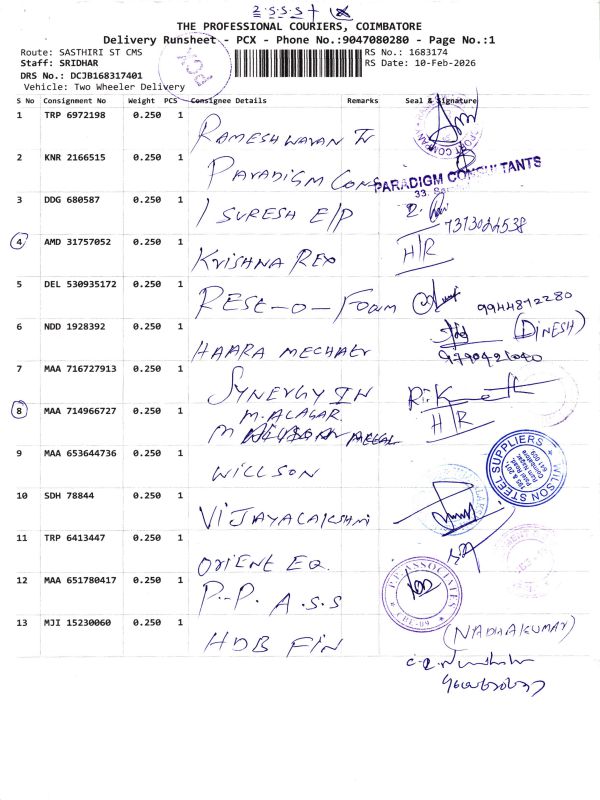 2.S.S.S+
THE PROFESSIONAL COURIERS, COIMBATORE
Delivery Runsheet - PCX - Phone No.:9047080280 - Page No.:1
Route: SASTHIRI ST CMS RS No.: 1683174
Staff: SRIDHAR RS Date: 10-Feb-2026
DRS No.: DCJB168317401
Vehicle: Two Wheeler Delivery
PCX
S No Consignment No Weight PCS Consignee Details Remarks Seal & Signature
1 TRP 6972198 0.250 1 RAMESHWARAN
2 KNR 2166515 0.250 1 PARADIGM CONS PARADIGM CONSULTANTS
3 DDG 680587 0.250 1 SURESH E/P
4 AMD 31757052 0.250 1 KRISHNA REX H/R
5 DEL 530935172 0.250 1 REST-O-FOAM
6 NDD 1928392 0.250 1 HAARA MECHATR (DINESH)
9790421040
7 MAA 716727913 0.250 1 SYNERGY IN
8 MAA 714966727 0.250 1 M. ALAGAR H/R
9 MAA 653644736 0.250 1 WILLSON WILSON STEEL SUPPLIERS
10 SDH 78844 0.250 1 VIJAYALAKSHMI
11 TRP 6413447 0.250 1 ORIENT EQ.
12 MAA 651780417 0.250 1 P.P. A.S.S P.P. ASSOCIATES
13 MJI 15230060 0.250 1 HDB FIN (NADHAKUMAR)